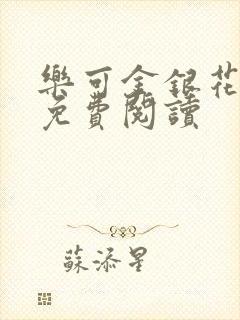 樂可金銀花
免費閱讀
蘇添星